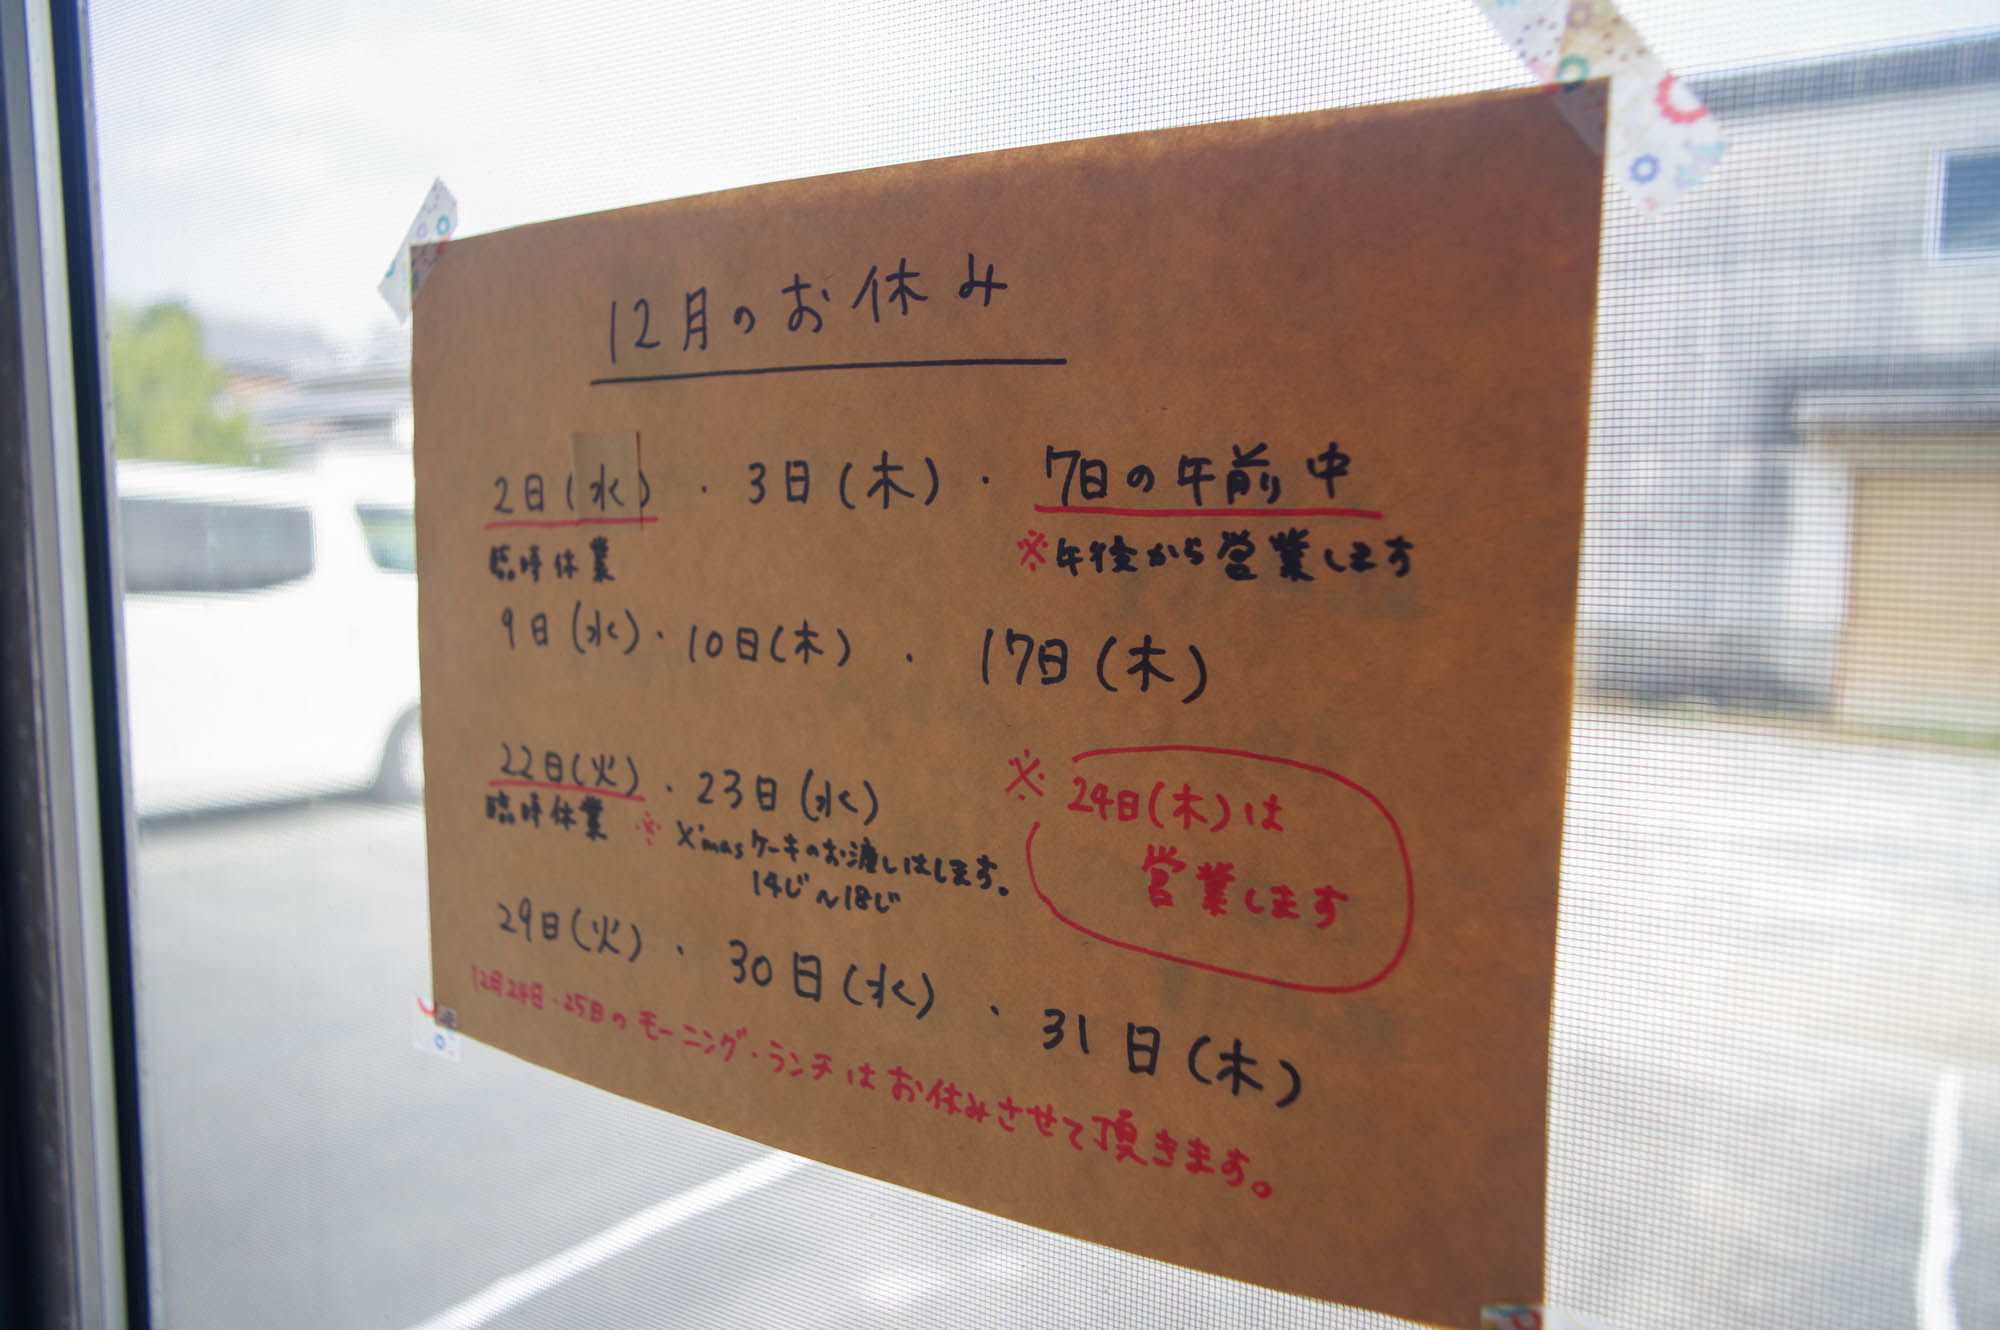 12月のお休み
2日(水)・3日(木)・7日の午前中
臨時休業
※午後から営業します
9日(水)・10日(木)・17日(木)
22日(火)・23日(水)
臨時休業
※X'masケーキのお渡しはします。
14じ〜18じ
※24日(木)は
営業します
29日(火)・30日(水)・31日(木)
12月24日・25日のモーニング・ランチはお休みさせて頂きます。